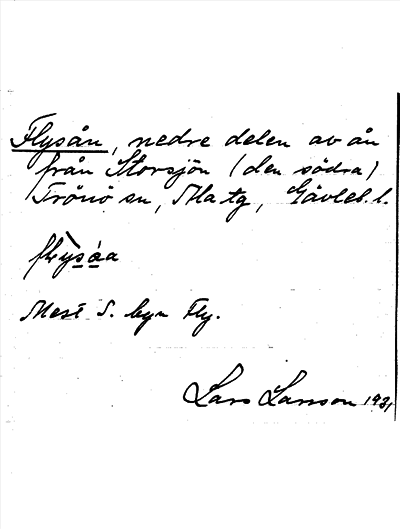 Flysån, nedre delen av ån
från Storsjön (den södra)
Trönö sn, Ala tg, Gävleb. l.
flysåa
Mest S. byn Fly.
Lars Larsson 1931